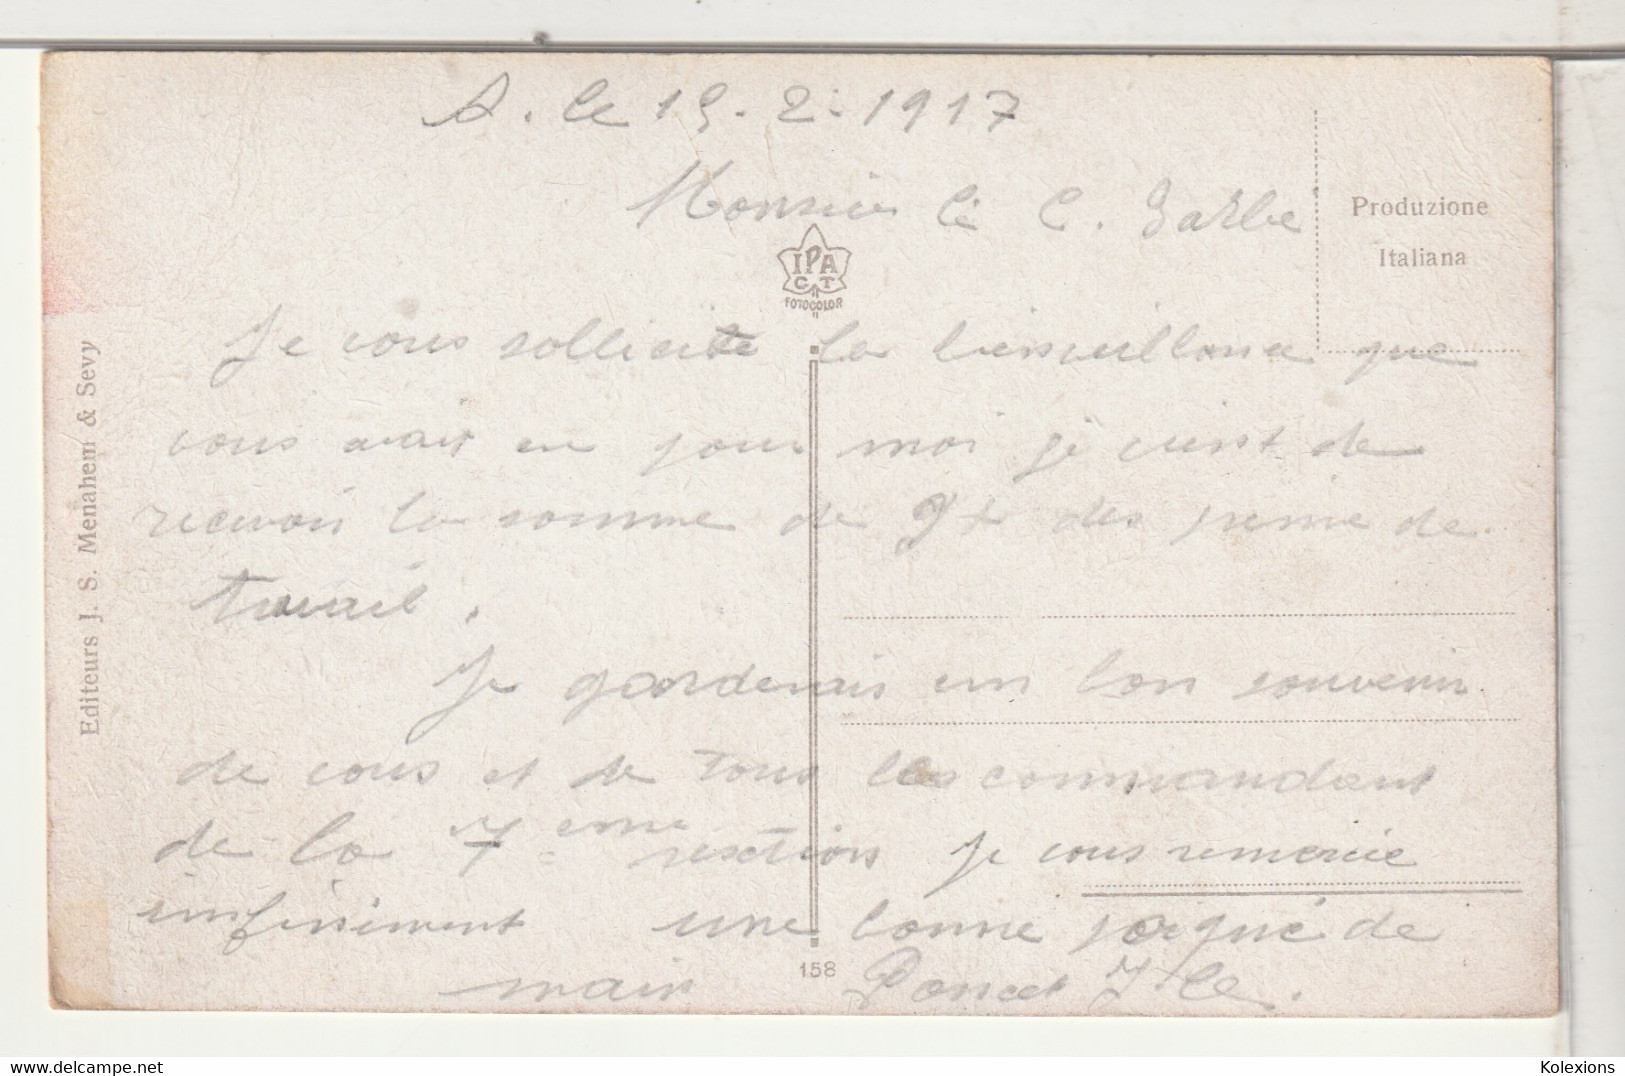 A. le 15-2-1917
Monsieu le C. Barbe
Produzione
Italiana
IPA
CT
FOTOCOLOR
Je vous sollicite la bienveillance que
vous avait eu pour moi je vient de
recevoir la somme de 9f des prime de
travail.
Je garderais un bon souvenir
de vous et de tous les commandant
de la 7ème section Je vous remercie
infiniment une bonne poigné de
main Poncet
158
Editeurs J. S. Menahem & Sevy
Kolexions